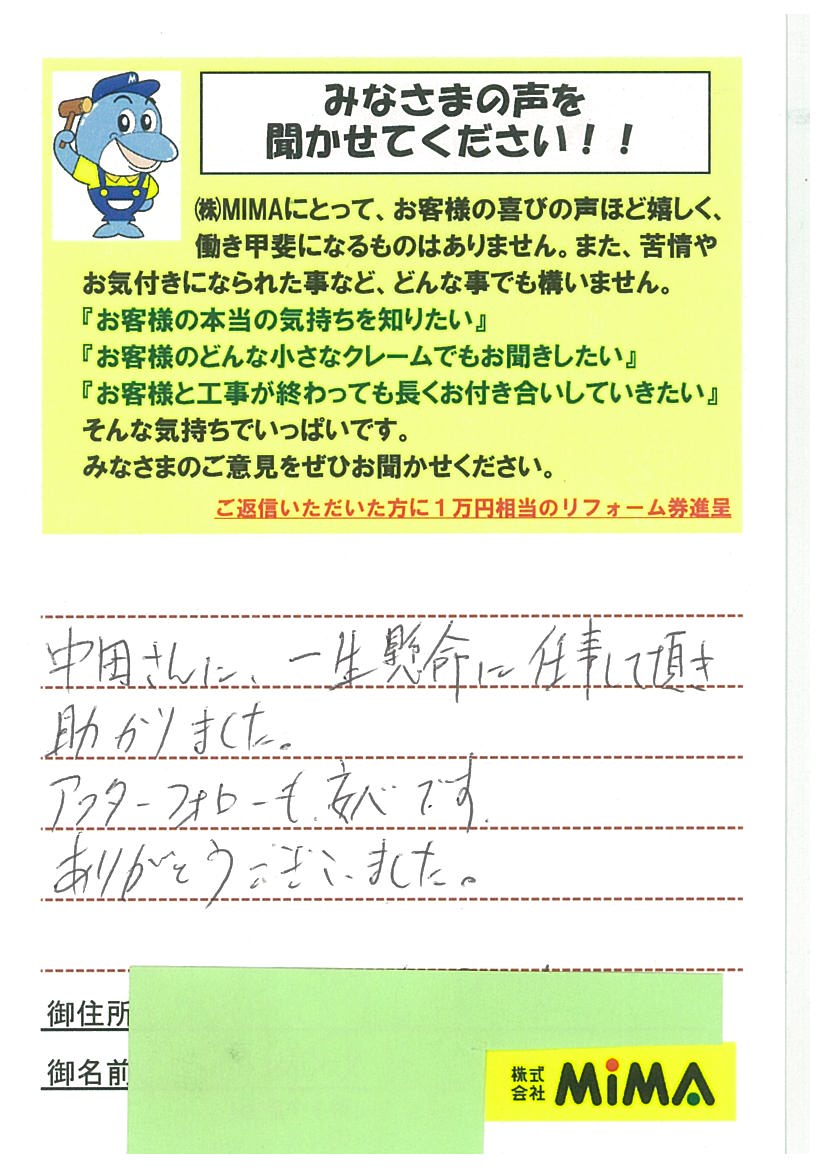 みなさまの声を
聞かせてください！！
㈱MIMAにとって、お客様の喜びの声ほど嬉しく、
働き甲斐になるものはありません。また、苦情や
お気付きになられた事など、どんな事でも構いません。
『お客様の本当の気持ちを知りたい』
『お客様のどんな小さなクレームでもお聞きしたい』
『お客様と工事が終わっても長くお付き合いしていきたい』
そんな気持ちでいっぱいです。
みなさまのご意見をぜひお聞かせください。
ご返信いただいた方に１万円相当のリフォーム券進呈
中田さんに、一生懸命に仕事して頂き
助かりました。
アフターフォローも、安心です。
ありがとうございました。
御住所
御名前
株式会社 MIMA